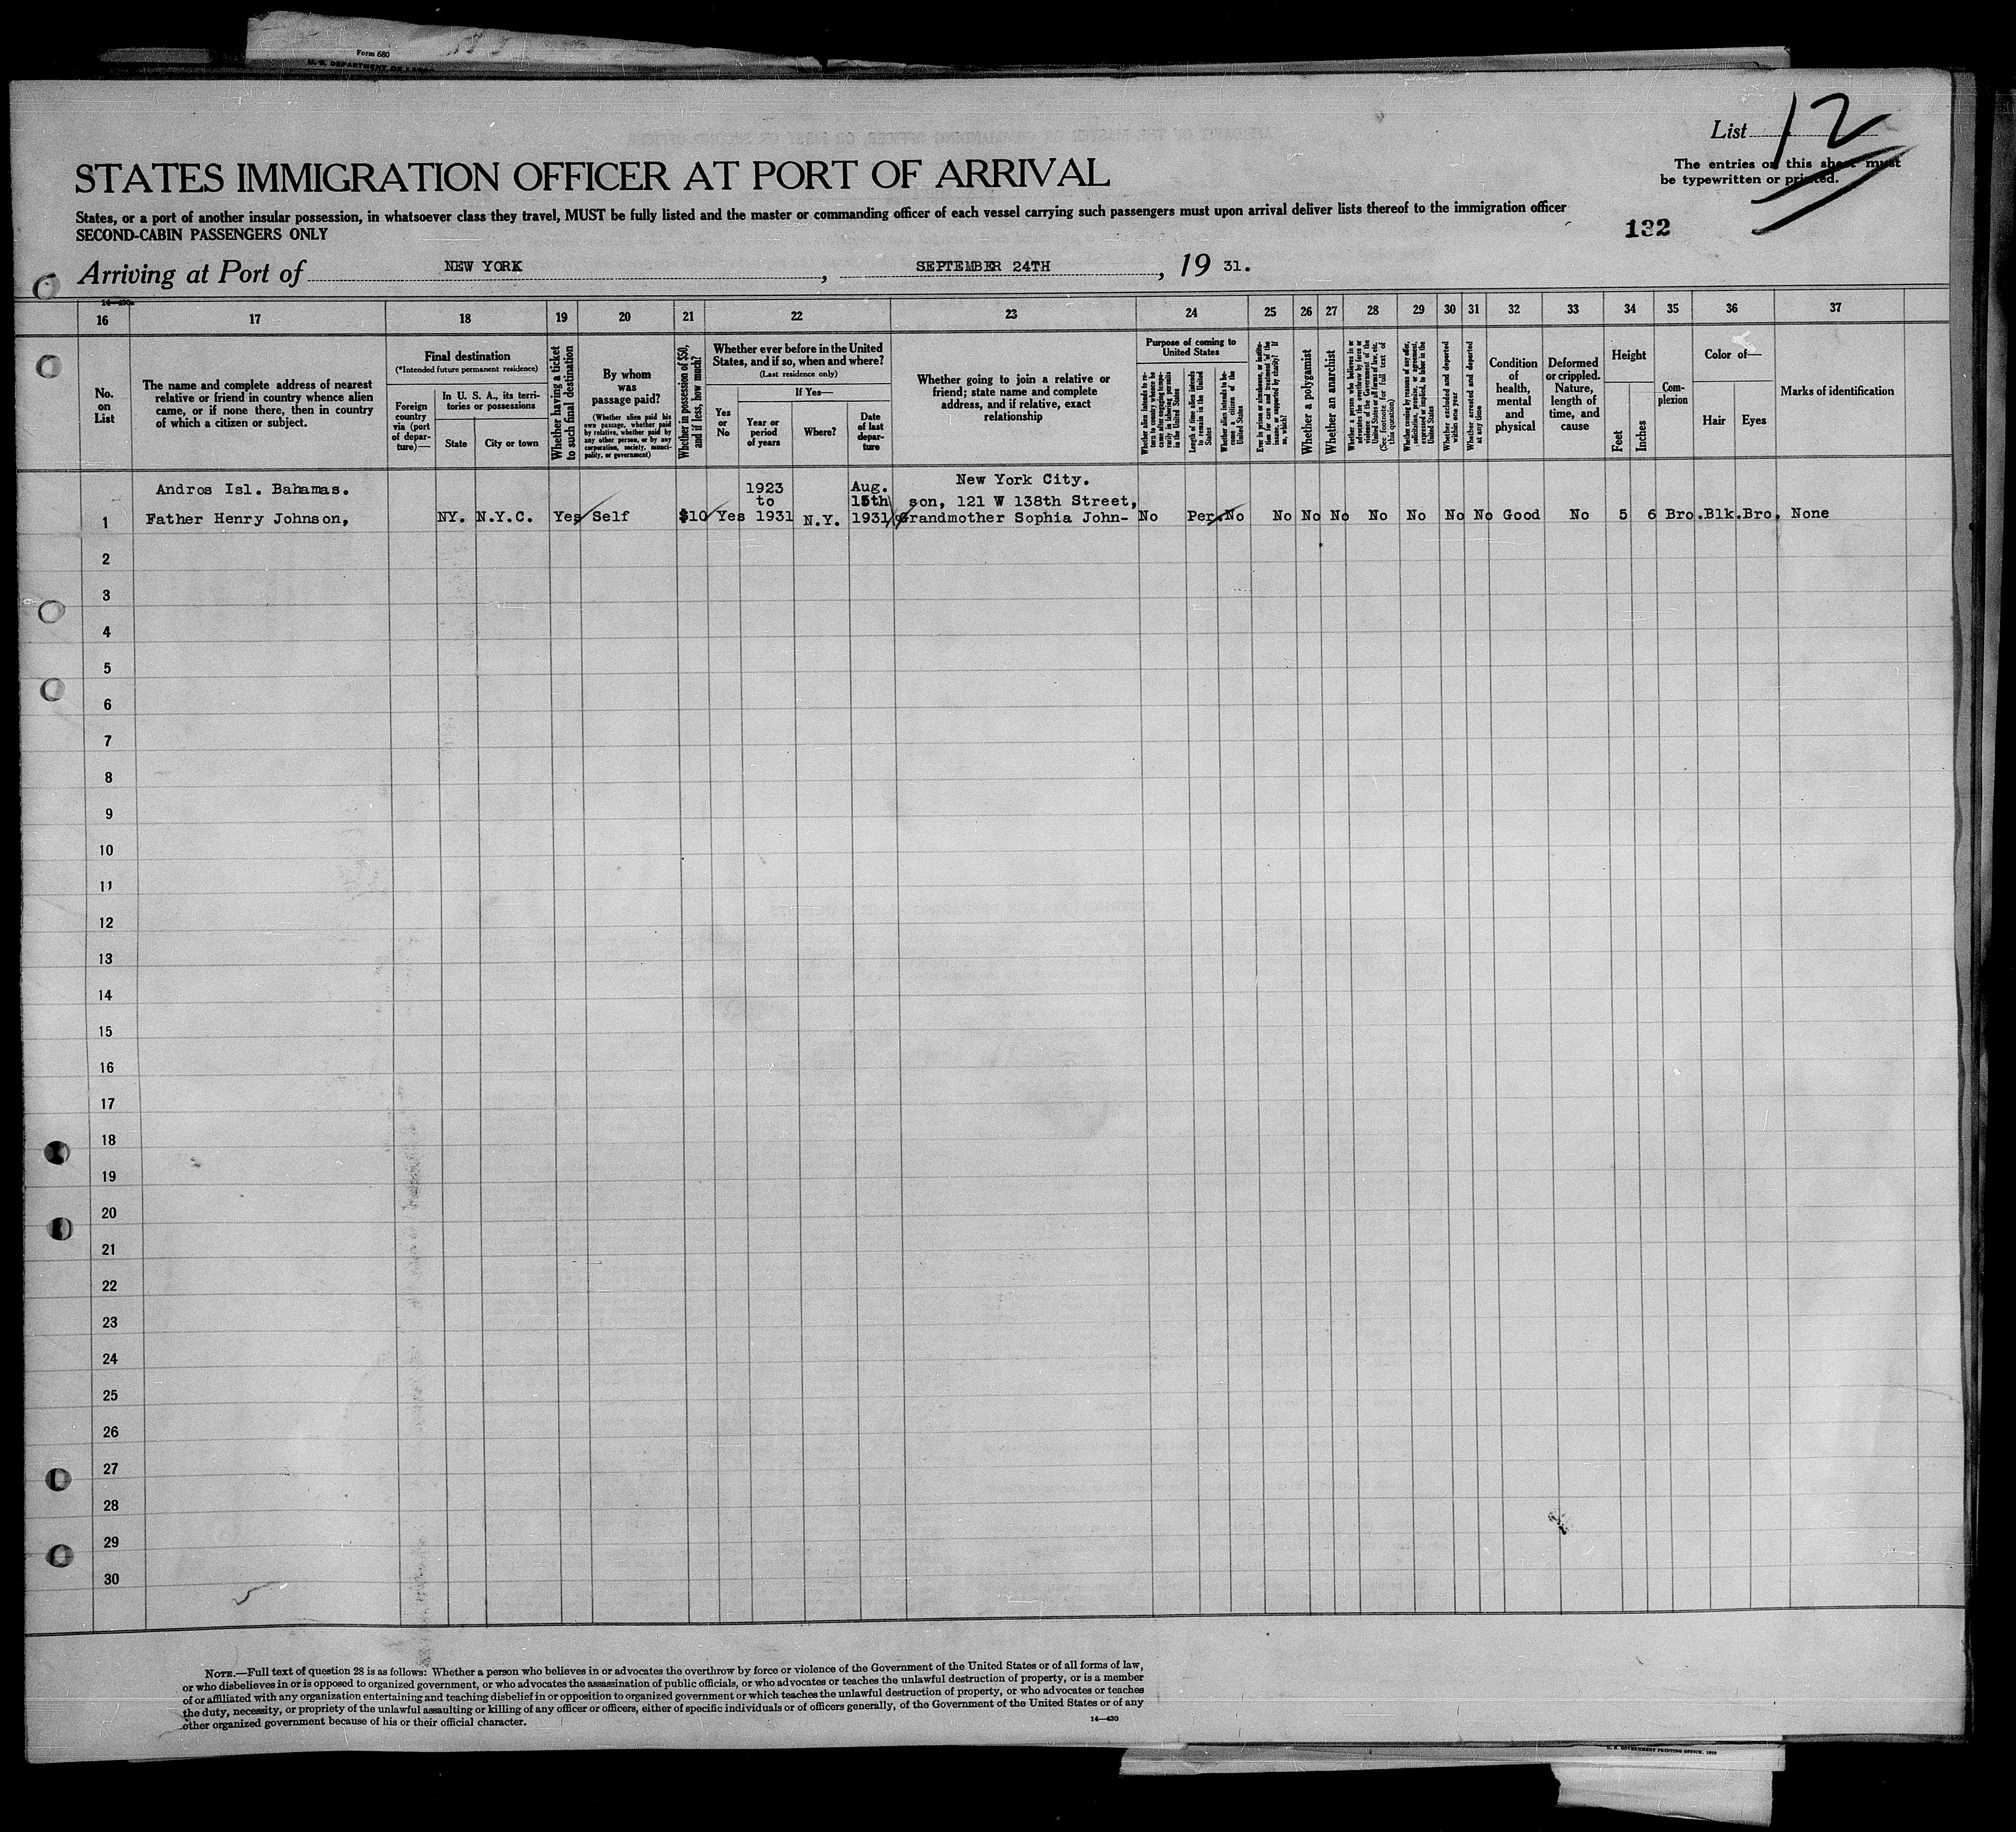 Form 680
U. S. DEPARTMENT OF LABOR
List 12
The entries on this sheet must
be typewritten or printed.
STATES IMMIGRATION OFFICER AT PORT OF ARRIVAL
States, or a port of another insular possession, in whatsoever class they travel, MUST be fully listed and the master or commanding officer of each vessel carrying such passengers must upon arrival deliver lists thereof to the immigration officer
SECOND-CABIN PASSENGERS ONLY
132
Arriving at Port of NEW YORK, SEPTEMBER 24TH, 19 31.
14-430
16 17 18 19 20 21 22 23 24 25 26 27 28 29 30 31 32 33 34 35 36 37
No.
on
List
The name and complete address of nearest
relative or friend in country whence alien
came, or if none there, then in country
of which a citizen or subject.
Final destination
(*Intended future permanent residence)
Foreign
country
via (port
of depar-
ture)—
In U. S. A., its terri-
tories or possessions
State
City or town
Whether having a ticket
to such final destination
By whom
was
passage paid?
(Whether alien paid his
own passage, whether paid
by relative, whether paid by
any other person, or by any
corporation, society, munici-
pality, or government)
Whether in possession of $50,
and if less, how much?
Whether ever before in the United
States, and if so, when and where?
(Last residence only)
Yes
or
No
If Yes—
Year or
period
of years
Where?
Date
of last
depar-
ture
Whether going to join a relative or
friend; state name and complete
address, and if relative, exact
relationship
Purpose of coming to
United States
Whether alien intends to re-
turn to country whence he
came after engaging tempo-
rarily in laboring pursuits
in the United States
Length of time alien intends
to remain in the United
States
Whether alien intends to be-
come a citizen of the
United States
Ever in prison or almshouse, or institu-
tion for care and treatment of the
insane, or supported by charity? If
so, which?
Whether a polygamist
Whether an anarchist
Whether a person who believes in or
advocates the overthrow by force or
violence of the Government of the
United States or all forms of law, etc.
(See footnote for full text of
this question)
Whether coming by reasons of any offer,
solicitation, promise, or agreement,
expressed or implied, to labor in the
United States
Whether excluded and deported
within one year
Whether arrested and deported
at any time
Condition
of
health,
mental
and
physical
Deformed
or crippled.
Nature,
length of
time, and
cause
Height
Feet
Inches
Com-
plexion
Color of—
Hair
Eyes
Marks of identification
Andros Isl. Bahamas. 1923 Aug. New York City.
to 15th son, 121 W 138th Street,
1 Father Henry Johnson, NY. N.Y.C. Yes Self $10 Yes 1931 N.Y. 1931 Grandmother Sophia John- No Per. No No No No No No No No Good No 5 6 Bro. Blk. Bro. None
2
3
4
5
6
7
8
9
10
11
12
13
14
15
16
17
18
19
20
21
22
23
24
25
26
27
28
29
30
5
NOTE.—Full text of question 28 is as follows: Whether a person who believes in or advocates the overthrow by force or violence of the Government of the United States or of all forms of law,
or who disbelieves in or is opposed to organized government, or who advocates the assassination of public officials, or who advocates or teaches the unlawful destruction of property, or is a member
of or affiliated with any organization entertaining and teaching disbelief in or opposition to organized government or which teaches the unlawful destruction of property, or who advocates or teaches
the duty, necessity, or propriety of the unlawful assaulting or killing of any officer or officers, either of specific individuals or of officers generally, of the Government of the United States or of any
other organized government because of his or their official character.
14—430
U. S. GOVERNMENT PRINTING OFFICE